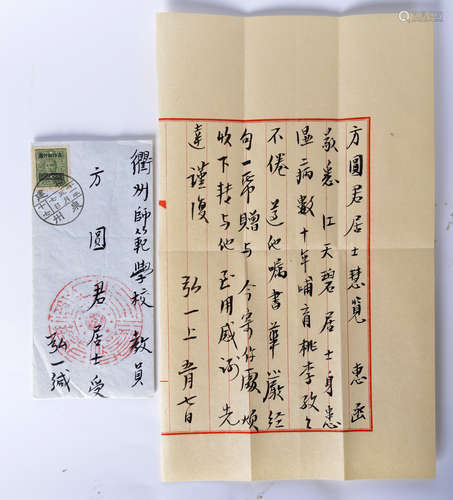 方圓君居士慧覽 惠函
敬悉 江天碧居士身患
濕病數十年哺育桃李孜々
不倦 遵他囑書華嚴經
句一幀贈与 今寄你處煩
收下轉与他 至用感謝 先
達 謹復
弘一上 五月七日
衢州師範學校 教員
方圓君居士受
弘一緘